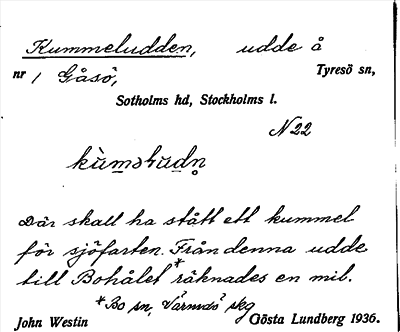 Kummeludden, udde å
nr 1 Gåsö, Tyresö sn,
Sotholms hd, Stockholms l.
N 22
kùmələdn̥
Där skall ha stått ett kummel
för sjöfarten. Från denna udde
till Bohålet* räknades en mil.
*Bo sn, Värmdö skg
John Westin Gösta Lundberg 1936.